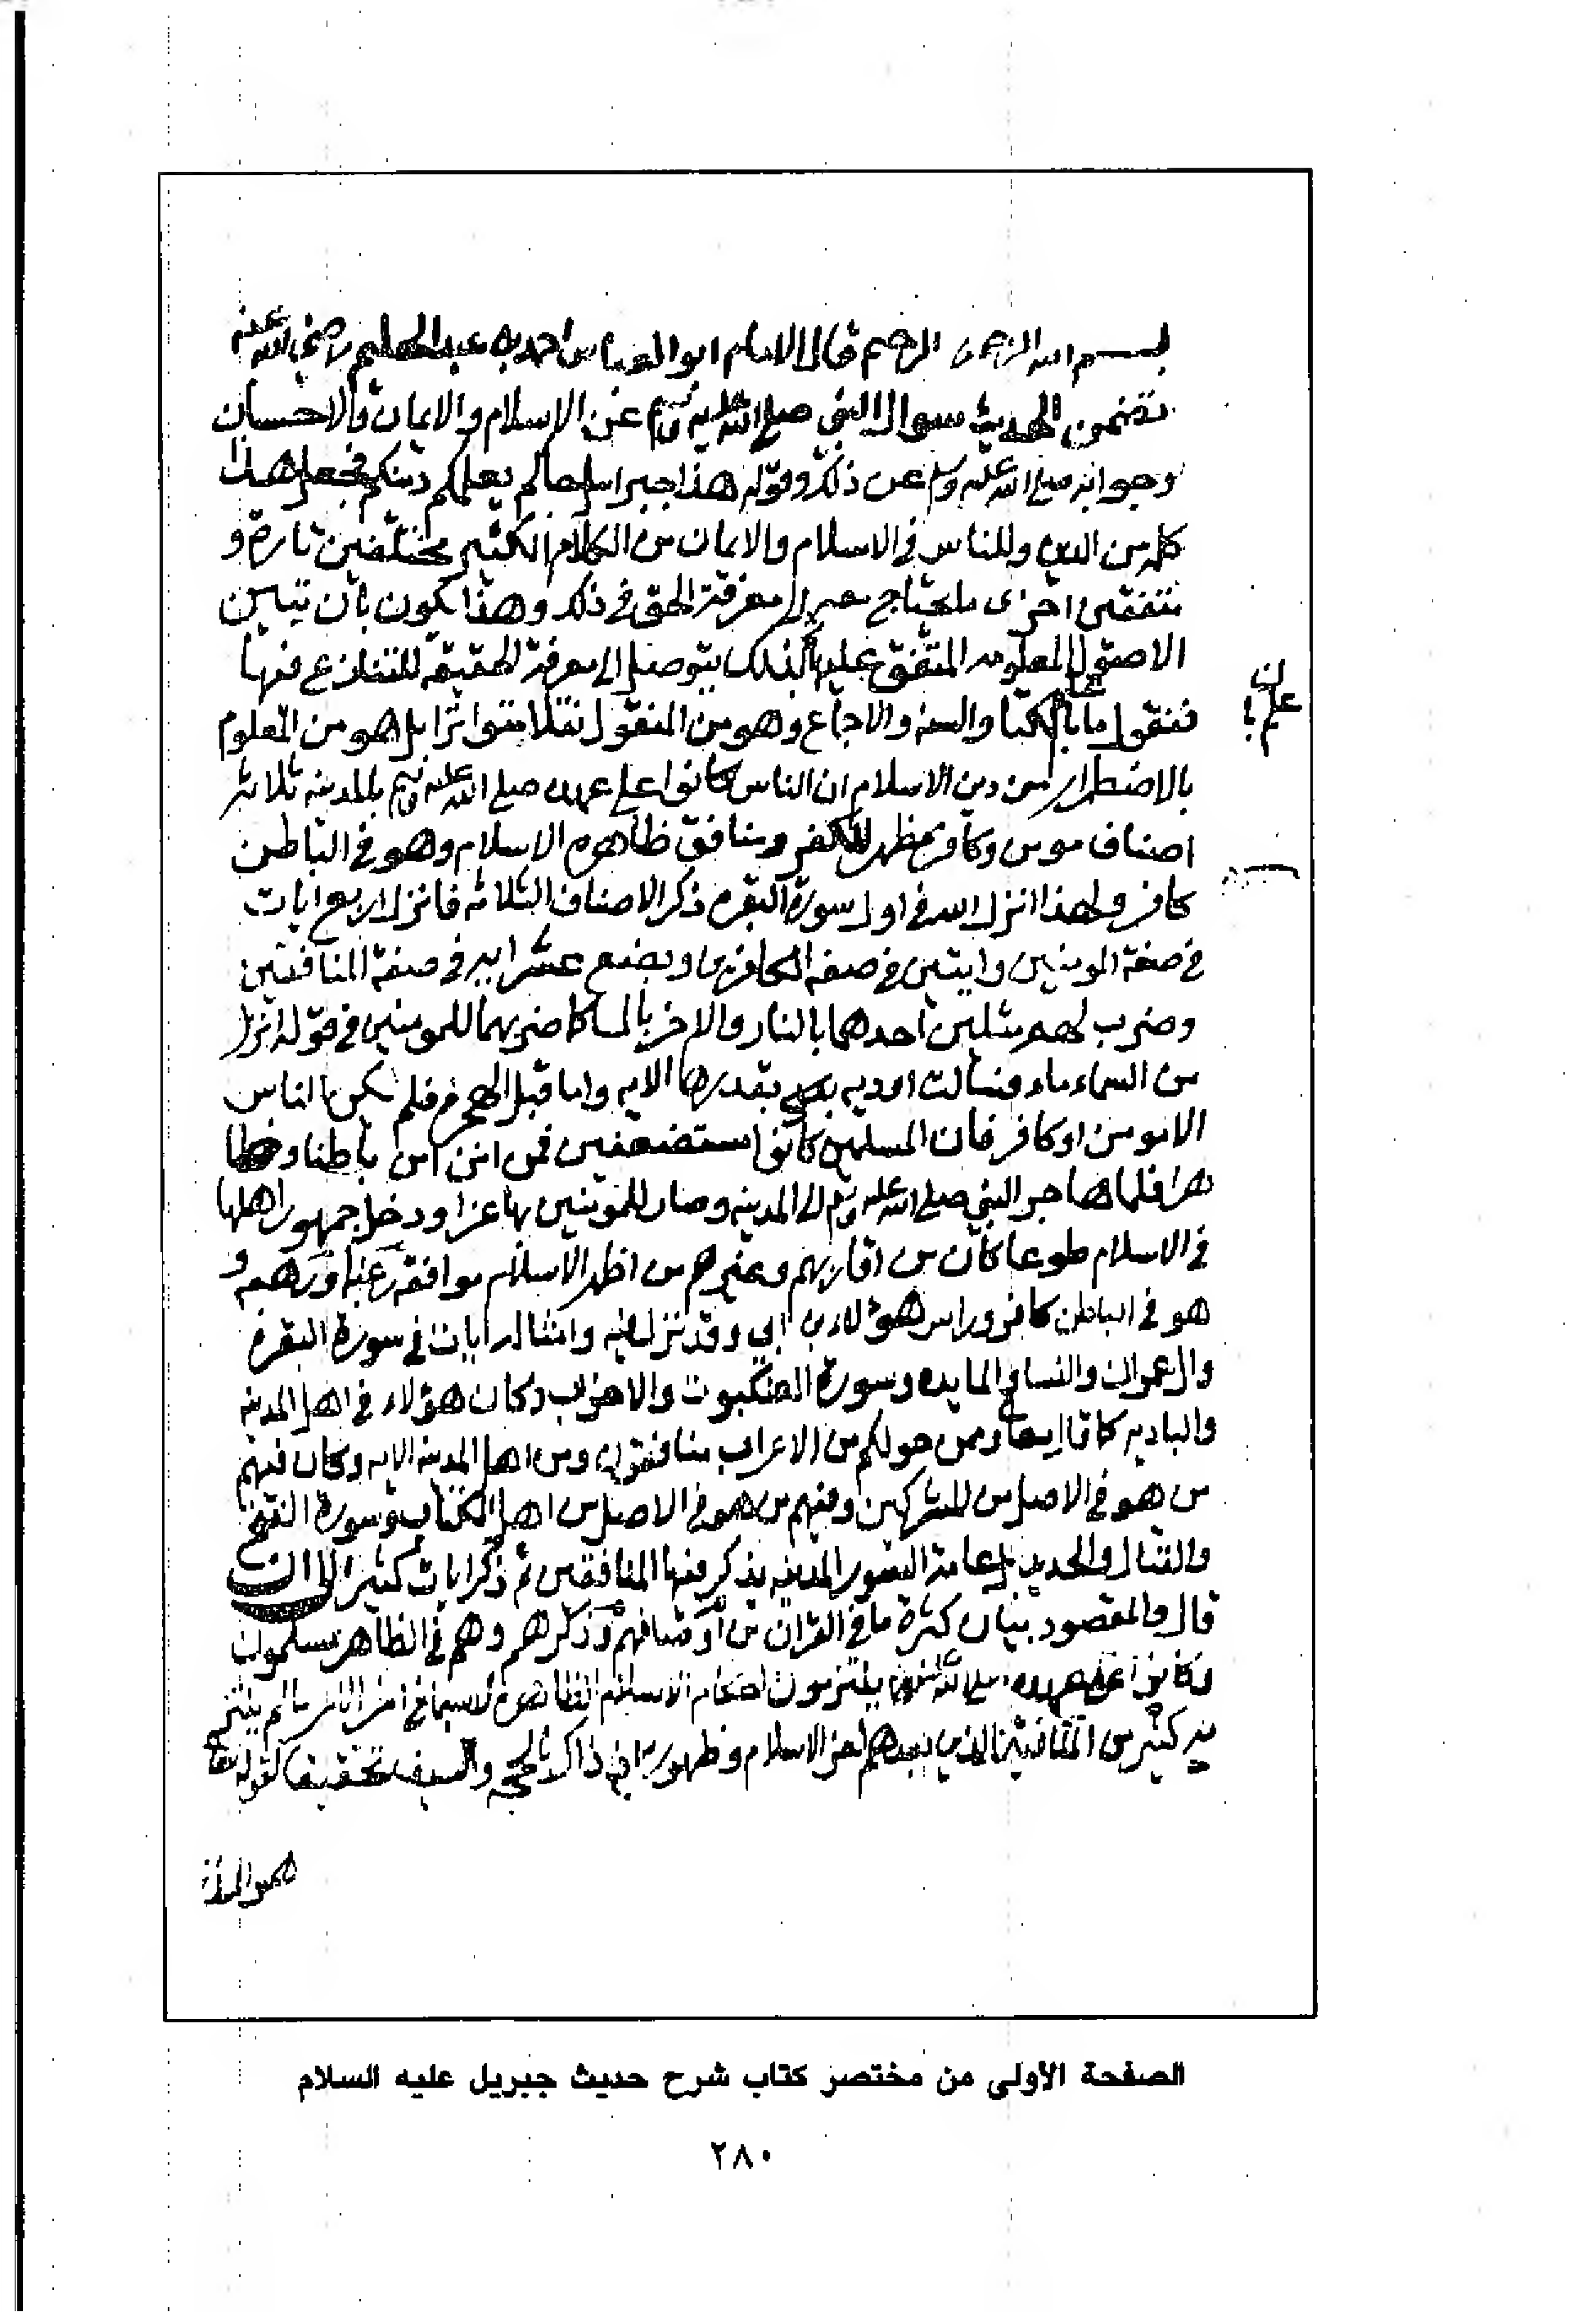 بسم الله الرحمن الرحيم قال الامام ابو العباس احمد بن عبد الحليم رضي الله عنه
تضمن الحديث سوال النبي صلى الله عليه وسلم عن الاسلام والايمان والاحسان
وجوابه صلى الله عليه وسلم عن ذلك وقوله هذا جبرايل جاكم يعلمكم دينكم فجعل هذا
كله من الدين وللناس في الاسلام والايمان من الكلام الكثير مختلفين تارة و
متفقين اخرى ما يحتاج معه الى معرفة الحق في ذلك وهذا يكون بان تبين
الاصول المعلومه المتفق عليها فبذلك يتوصل الى معرفة الحقيقه المتنازع فيها
فنقول ما علم بالكتاب والسنه والاجماع وهو من المنقول نقلا متواترا بل هو من المعلوم
بالاضطرار من دين الاسلام ان الناس كانوا على عهده صلى الله عليه وسلم بالمدينه ثلاثه
اصناف مومن وكافر مظهر للكفر ومنافق ظاهره الاسلام وهو في الباطن
كافر ولهذا انزل الله في اول سورة البقره ذكر الاصناف الثلاثه فانزل اربع ايات
في صفة المومنين وايتين في صفه الكافرين وبضع عشر ايه في صفة المنافقين
وضرب لهم مثلين احدهما بالنار والاخر بالما كما ضربهما للمومنين في قوله انزل
من السماء ماء فسالت اوديه بقدرها الايه واما قبل الهجره فلم يكن الناس
الا مومن او كافر فان المسلمين كانوا مستضعفين فمن امن امن باطنا وظا
هرا فلما هاجر النبي صلى الله عليه وسلم الى المدينه وصار للمومنين بها عزا ودخل جمهور اهلها
في الاسلام طوعا كان من اقاربهم وغيرهم من اظهر الاسلام موافقه رغبه ورهبه و
هو في الباطن كافر وراس هؤلاء بن ابي وقد نزل فيه وامثاله ايات في سورة البقره
وال عمران والنسا والمايده وسورة العنكبوت والاحزاب وكان هؤلاء في اهل المدينه
والباديه كما قال تعالى وممن حولكم من الاعراب منافقون ومن اهل المدينه الايه وكان فيهم
من هو في الاصل من المشركين وفيهم من هو في الاصل من اهل الكتاب وسورة الفتح
والقتال والحديد بل عامة السور المدنيه يذكر فيها المنافقين ثم ذكر ايات كثيره الى ان
قال والمقصود بيان كثرة ما في القران من اوصافهم وذكرهم وهم في الظاهر مسلمون
وكانوا على عهده صلى الله عليه وسلم يلتزمون احكام الاسلام الظاهره لاسيما في اخر الامر ما لم يلتزم
به كثير من المنافقين الذين بعدهم لعز الاسلام وظهوره اذ ذاك بالحجه والسيف تحقيقا لقوله تعالى
هو الذي
الصفحة الأولى من مختصر كتاب شرح حديث جبريل عليه السلام
٢٨٠